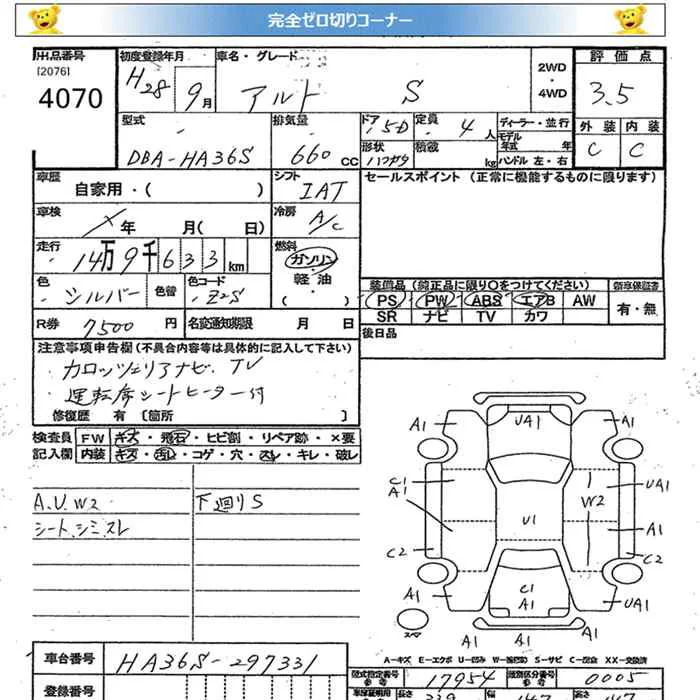 完全ゼロ切りコーナー
出品番号 初度登録年月 車名・グレード 評価点
[2076] 4070 H28年 9月 アルト S 2WD・4WD 3.5
型式 排気量 ドア 5D 定員 4人 ディーラー・並行 外装 内装
モデル年式 年
DBA-HA36S 660cc 形状 積載 kg ハンドル 左・右 C C
車歴 シフト セールスポイント (正常に機能するものに限ります)
自家用・( ) IAT
車検 年 月( 日) 冷房 A/C
走行 14万9千633km 燃料 ガソリン 軽油
色 シルバー 色替 色コード Z2S 装備品(純正品に限り○をつけてください) 新車保証書
PS PW ABS エアB AW 有・無
SR ナビ TV カワ
R券 7500円 名変通知期限 月 日 後日品
注意事項申告欄(不具合内容等は具体的に記入して下さい)
カロッツェリアナビ、TV
運転席シートヒーター付
修復歴 有〔箇所 〕
検査員 FW キズ・飛石・ヒビ割・リペア跡・×要
記入欄 内装 キズ・汚レ・コゲ・穴・スレ・キレ・破レ
A.U.W2 下廻りS
シート、シミスレ
A1 UA1 A1
C1 A1 UA1
W2
U1 A1
C2 C2
C1
A1 A1 UA1
スペア A1 A1 A1
A-キズ E-エクボ U-凹み W-波板 S-サビ C-腐食 XX-交換済
車台番号 HA36S-297331 型式指定番号 参考 17954 類別区分番号 参考 0005
登録番号 長さ 339 幅 147 高さ 147